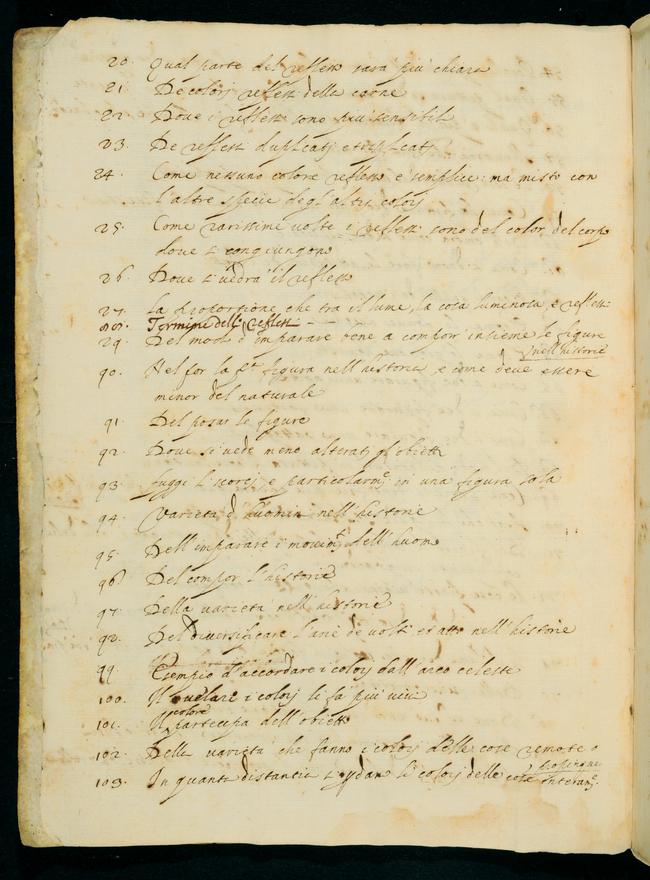 20. Qual parte del reflesso sara piu chiara
21. De colorj reflessi della carne
22. Dove i reflessi sono piu sensibili
23. De reflessi duplicatj e triplicatj
24. Come nessuno colore reflesso e semplice: ma misto con
l'altre specie degl'altri colorj
25. Come rarissime volte i reflessi sono del color del corpo
dove si congiungono
26. Dove si vedra il reflesso
27. La proportione che tra il lume, la cosa luminosa e reflessi
88. Termini delli reflessi
29. Del modo d'imparare bene a compor insieme le figure
nell'historie
90. Nel for la pa figura nell'historia e come deve essere
minor del naturale
91. Del posar le figure
92. Dove si vede meno alteratj gl'obietti
93. fuggi l'uorej e particolarme in una figura sola
94. Varieta d'huomini nell'historie
95. Dell'imparare i movimti dell'huomo
96. Del compor l'historie
97. Della varieta nell'historie
98. Del diversificare l'arie de volti et atto nell'historie
99. Esempio d'accordare i colorj dall'arco celeste
100. Il velare i colorj li fa piu vivi
101. Il colore partecipa dell'obietto
102. Della varieta che fanno i colorj delle cose remote o
propinque
103. In quanta distantia si perdano li colorj delle cose interame.